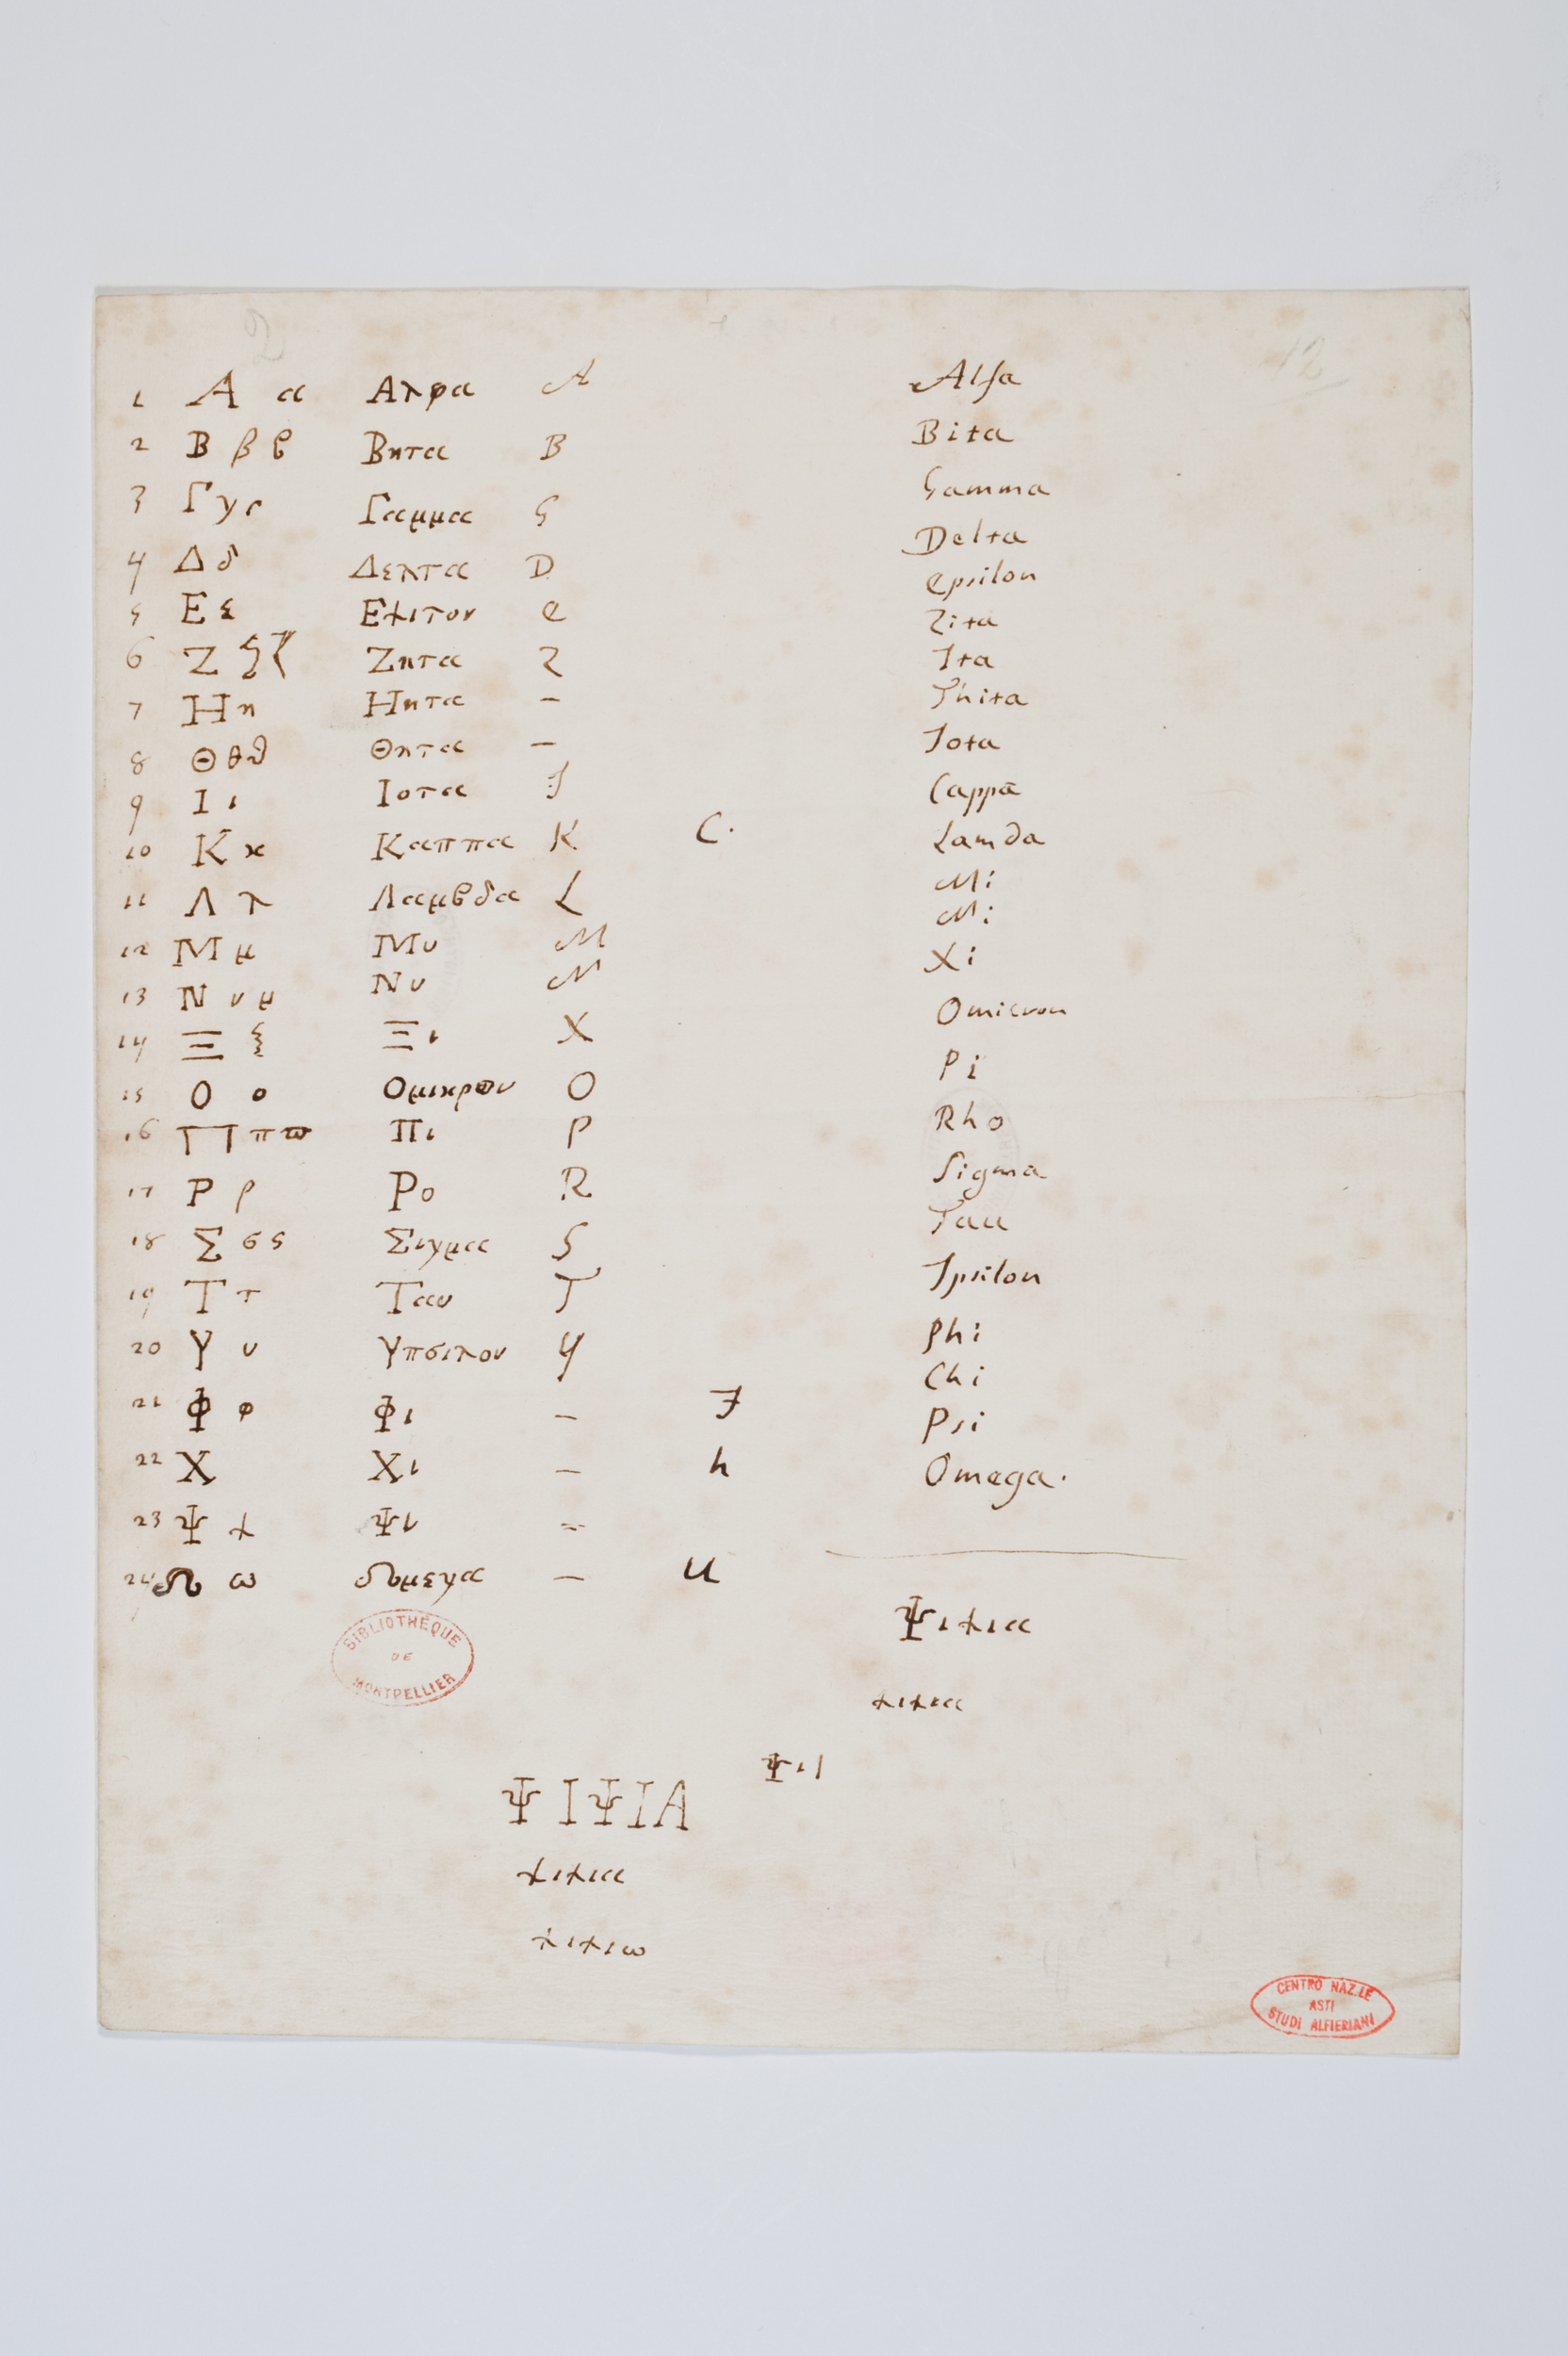 12
1 Α α Αλφα A Alfa
2 Β β ϐ Βητα B Bita
3 Γ γ Γαμμα G Gamma
4 Δ δ Δελτα D Delta
5 Ε ε Εψιτον e epsilon
6 Ζ ζ Ζητα Z Zita
7 Η η Ηητα – Ita
8 Θ θ ϑ Θητα – Thita
9 Ι ι Ιοτα I Iota
10 Κ κ Καππα K C. Cappa
11 Λ λ Λαμϐδα L Lamda
12 Μ μ Μυ M Mi
13 Ν ν μ Νυ N Ni
14 Ξ ξ Ξι X Xi
15 Ο ο Ομικρον O Omicron
16 Π π ϖ Πι P Pi
17 Ρ ρ Ρο R Rho
18 Σ σ ς Σιγμα S Sigma
19 Τ τ Ταυ T Tau
20 Υ υ Υπσιλον Y Ipsilon
21 Φ φ Φι – F Phi
22 Χ Χι – h Chi
23 Ψ ψ Ψι = Psi
24 Ω ω Ωμεγα – U Omega.
BIBLIOTHÈQUE
DE
MONTPELLIER
Ψιψια
ψιψια
Ψιι
ΨΙΨΙΑ
ψιψια
ψιψιω
CENTRO NAZ.LE
ASTI
STUDI ALFIERIANI